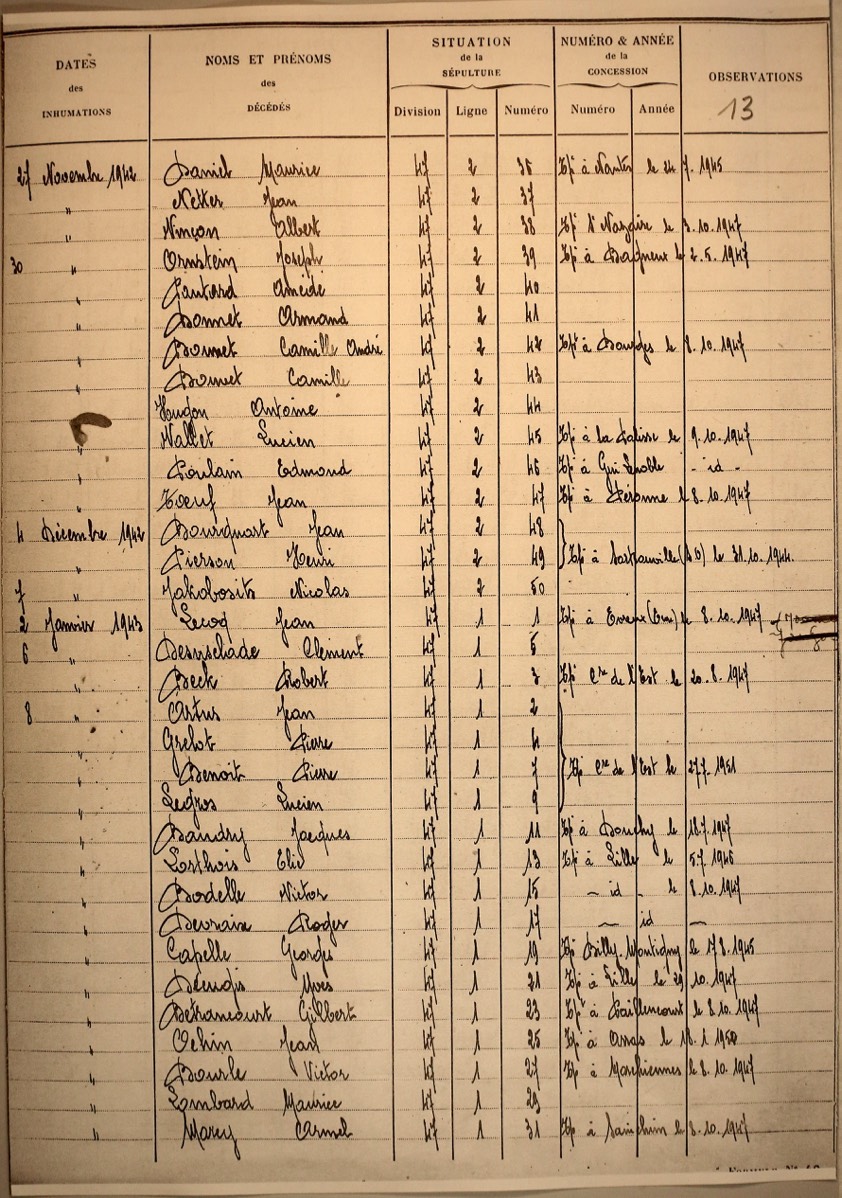 DATES des INHUMATIONS
NOMS ET PRÉNOMS des DÉCÉDÉS
SITUATION de la SÉPULTURE
NUMÉRO & ANNÉE de la CONCESSION
OBSERVATIONS
13
Division Ligne Numéro Numéro Année
27 Novembre 1942 Daniel Maurice 47 2 36 Tpé à Nantes le 24 7. 1945
" Netter Jean 47 2 37
" Ninçon Albert 47 2 38 Tpé St Nazaire le 3.10.1947
30 " Ornstein Joseph 47 2 39 Tpé à Bagneux le 2.5.1947
" Pautard Amédé 47 2 40
" Bonnet Armand 47 2 41
" Camille André 47 2 42 Tpé à Bourges le 8.10.1947
" Camille 47 2 43
Houdon Antoine 47 2 44
" Nallet Lucien 47 2 45 Tpé à la Palisse le 9.10.1947
" Poulain Edmond 47 2 46 Tpé à - id -
" Jean 47 2 47 Tpé à Péronne le 8.10.1947
4 Décembre 1942 Bourquart Jean 47 2 48
" Pierson Henri 47 2 49 Tpé à Sartrouville (S O) le 31.10.1944.
7 " Jakobosits Nicolas 47 2 50
2 Janvier 1943 Lecoq Jean 47 1 1 Tpé à Evreux (Eure) le 8.10.1947
6 " Desnschade Clément 47 1 5
" Beck Robert 47 1 3 Tpé Cre de l'Est le 20.8.1947
8 " Artus Jean 47 1 2
" Grelot Pierre 47 1 4
" Benoit Pierre 47 1 7 Tpé Cre de l'Est le 27.7.1951
" Legros Lucien 47 1 9
" Baudry Jacques 47 1 11 Tpé à Douchy le 18.7.1947
" Losthois Elie 47 1 13 Tpé à Lille le 5.7.1946
" Bodelle Victor 47 1 15 - id - le 8.10.1947
" Devraix Roger 47 1 17 - id -
" Capelle Georges 47 1 19 Tpé Billy-Montigny le 17.8.1945
" Yves 47 1 21 Tpé à Lille le 29 10.1947
" Détrancourt Gilbert 47 1 23 Tpé à Paillencourt le 8.10.1947
" Ochin Jean 47 1 25 Tpé à Arras le 18.1 1950
" Bourle Victor 47 1 27 Tpé à Marchiennes le 8.10.1947
" Lombard Maurice 47 1 29
" Marcy Carmel 47 1 31 Tpé à Sainghin le 8.10.1947